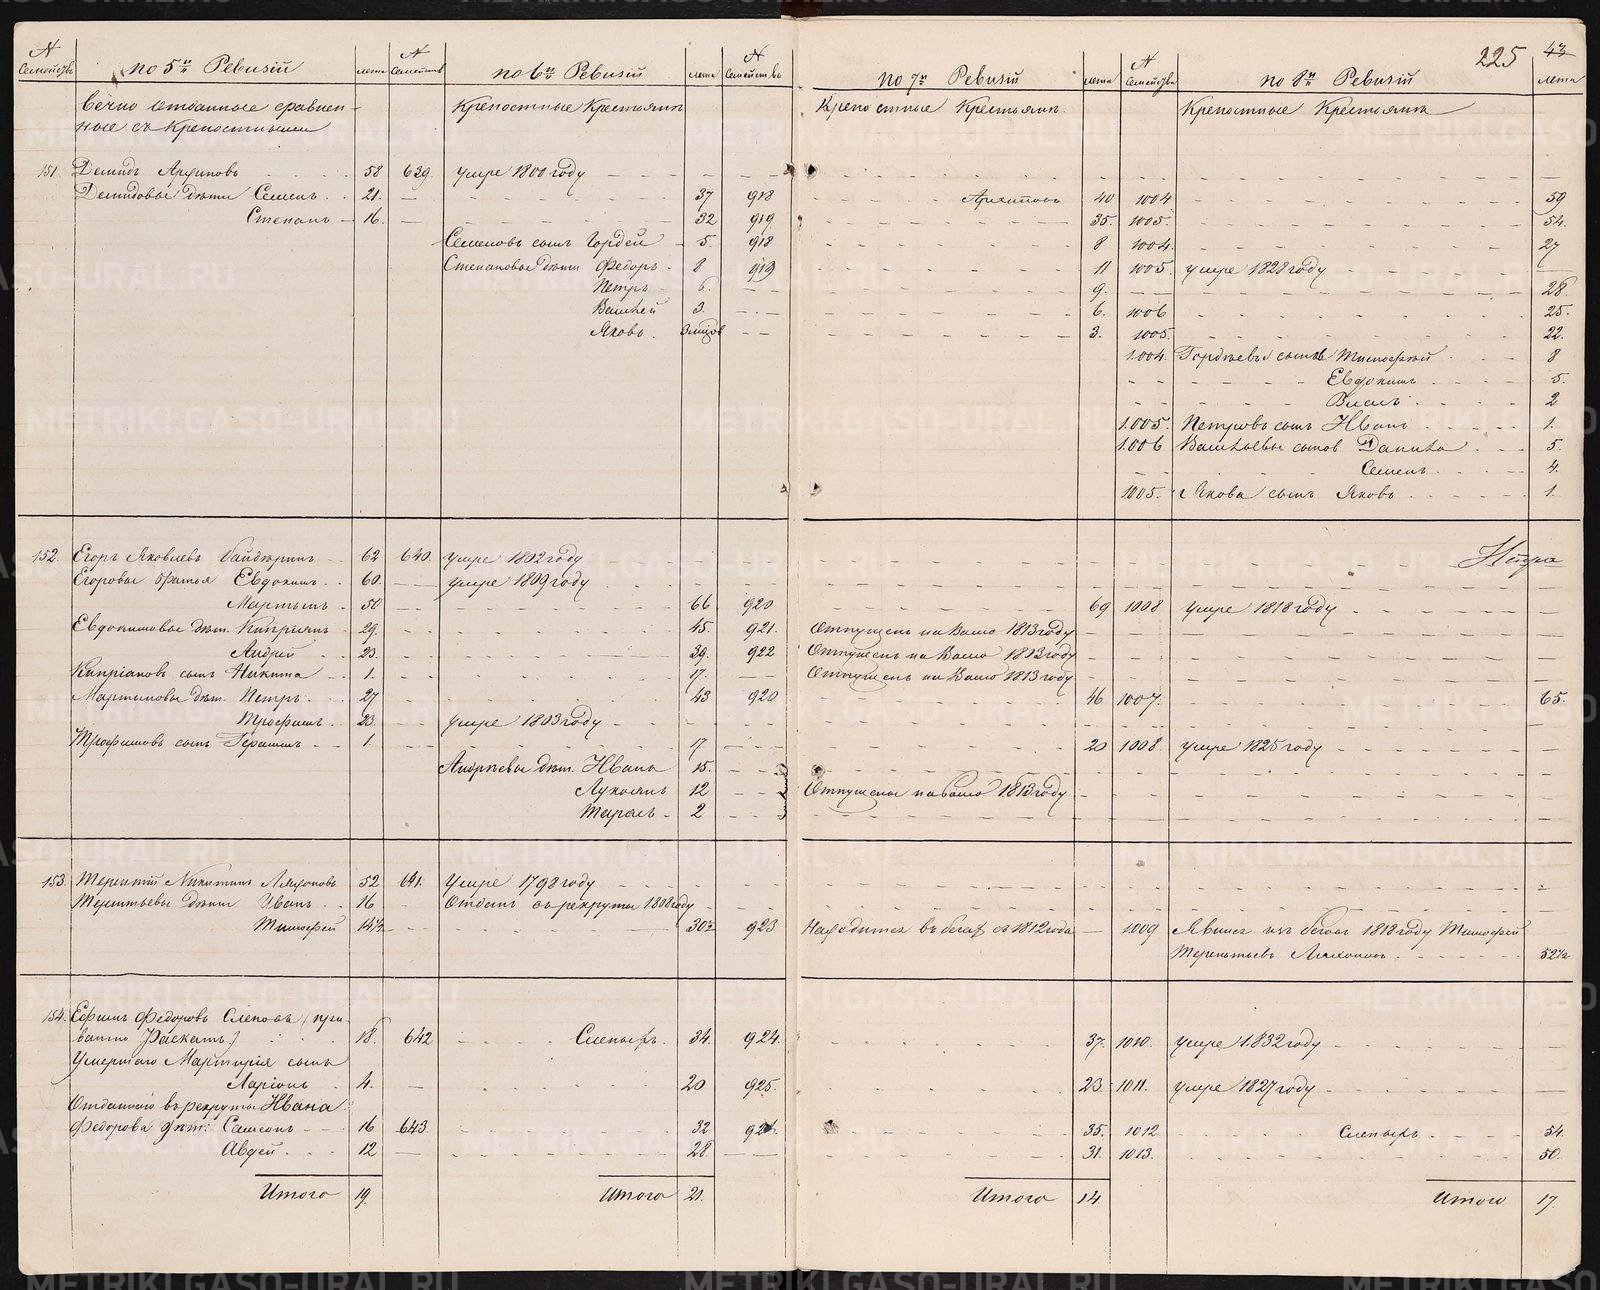 225 43
№ Семействъ по 5й Ревизіи лета № Семействъ по 6й Ревизіи лета № Семействъ по 7й Ревизіи лета № Семействъ по 8й Ревизіи лета
Вечно отданные сравнен- Крепостные Крестьяня Крепостные Крестьяня Крепостные Крестьяня
ные съ Крепостными
151. Демидъ Архиповъ 58 629 умре 1800 году
Демидовы дѣти Семенъ 21. 37 918 Архиповъ 40 1004 59
Степанъ 16. 32 919 35. 1005. 54.
Семеновъ сынъ Гордей 5. 918 8 1004. 27
Степановы дѣти Федоръ 8 919 11 1005. умре 1828 году
Петръ 6. 9. 28.
Василей 3. 6. 1006 25.
Яковъ 3. 1005. 22.
1.004. Гордѣевы сынов Тимофей 8
Евдокимъ 5.
Власъ 2
1.005. Петровъ сынъ Иванъ 1.
1.006 Васильевы сынов Данила 5.
Семенъ 4.
1005. Якова сынъ Яковъ 1.
152. Егоръ Яковлевъ 62 640. умре 1802 году
Егоровы братья Евдокимъ 60. умре 1809 году
Мартынъ 50 66 920 69 1008 умре 1818 году
Евдокимовы дѣт. Кипріянъ 29. 45. 921. Отпущенъ на Волю 1813 году
Андрей 23. 39. 922 Отпущенъ на Волю 1813 году
Кипріановъ сынъ Никита 1. 17. Отпущенъ на Волю 1813 году
Мартыновы дѣт. Петръ 27 43 920 46 1007. 65.
Трофимъ 23. умре 1803 году
Трофимовъ сынъ Герасимъ 1. 17 20 1008. умре 1825 году
Андрѣевы дѣт. Ивана 15.
Лукоянъ 12 Отпущены на волю 1813 году
Тарасъ 2
153. Терентій Никитинъ Ляхоновъ 52 641. Умре 1798 году
Терентьевы дѣти Иванъ 16 Отданъ въ рекруты 1808 году
Тимофей 14½ 30½ 923 Находится въ бегах с 1812 года 1009 Явился изъ бегов 1818 году Тимофей
Терентьевъ Ляхоновъ 52½
154. Ефимъ Федоровъ Слеповъ (при-
ватно Раскатъ) 18. 642 Слепыхъ 34. 924. 37. 1010. умре 1832 году
Умершаго Мартирія сынъ
Ларіонъ 4. 20 925. 23. 1011. умре 1827 году
Отданного въ рекруты Ивана
Федорова дѣт. Самсонъ 16 643 32 35. 1012 Слепыхъ 54.
Авдей 12 28. 31. 1013. 50.
Итого 19. Итого 21. Итого 14. Итого 17.
METRIKI.GASO-URAL.RU